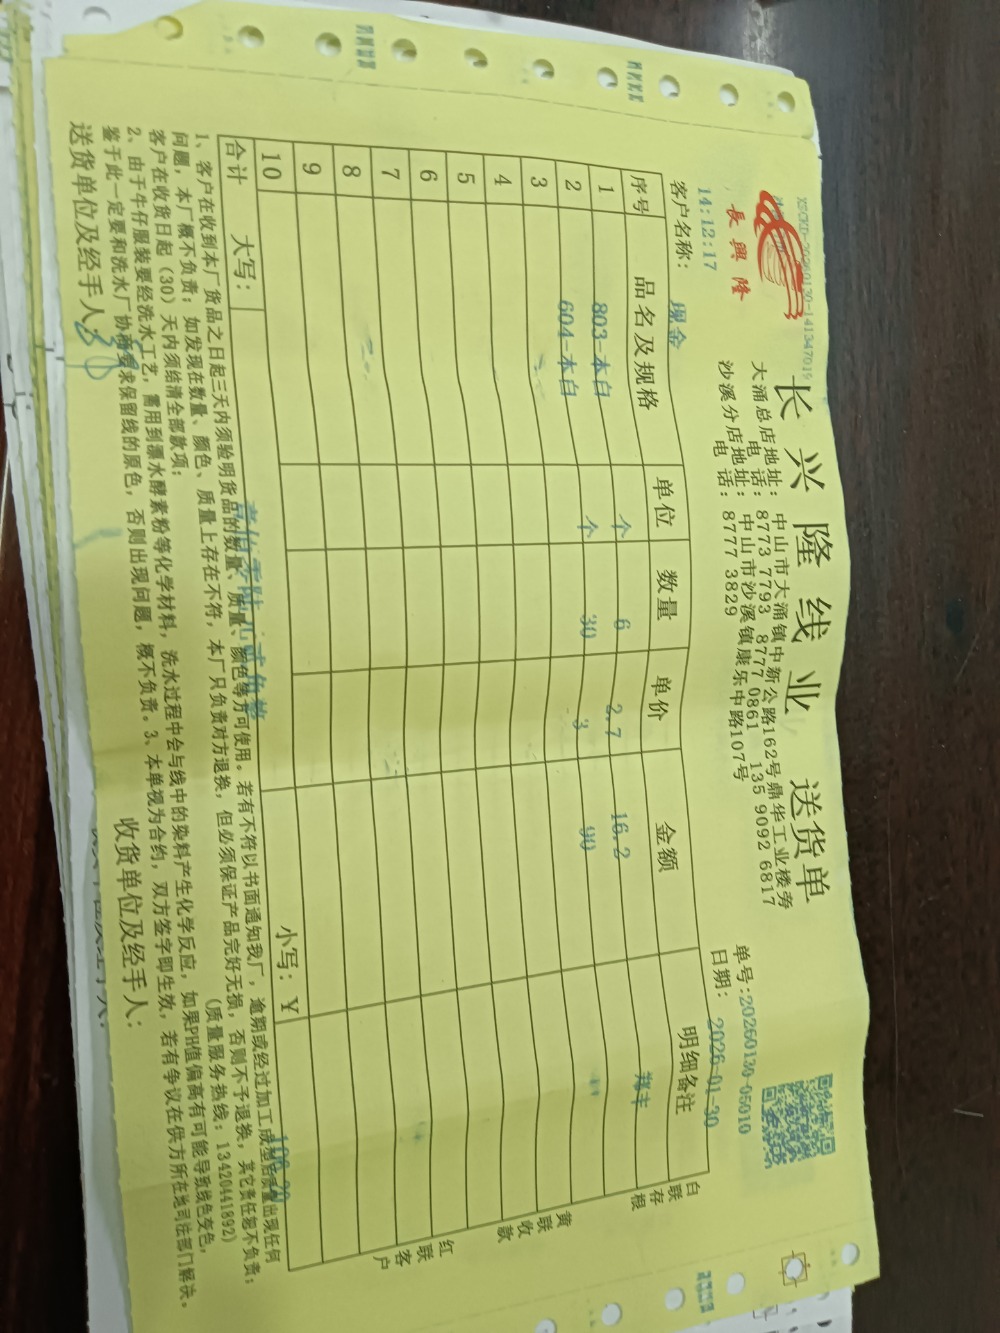 長興隆
长兴隆线业 送货单
大涌总店地址：中山市大涌镇中新公路162号鼎华工业楼旁
电 话：8773 7793 8777 0861 135 9092 6817
沙溪分店地址：中山市沙溪镇康乐中路107号
电 话：8777 3829
单号:20260130-05010
日期：2026-01-30
14:12:17
客户名称： 现金
序号 品名及规格 单位 数量 单价 金额 明细备注
1 803-本白 个 6 2.7 16.2
2 604-本白 个 30 3 90
3
4
5
6
7
8
9
10
合计 大写： 小写：¥ 106.20
白联存根
黄联收款
红联客户
1、客户在收到本厂货品之日起三天内须验明货品的数量、质量、颜色等方可使用。若有不符以书面通知我厂，逾期或经过加工成型后质量出现任何
问题，本厂概不负责；如发现在数量、颜色、质量上存在不符，本厂只负责对方退换，但必须保证产品完好无损，否则不予退换，其它责任恕不负责；
客户在收货日起（30）天内须结清全部款项； (质量服务热线：13420441892)
2、由于牛仔服装要经洗水工艺，需用到漂水酵素粉等化学材料，洗水过程中会与线中的染料产生化学反应，如果PH值偏高有可能导致线色变色，
鉴于此一定要和洗水厂协商要求保留线的原色，否则出现问题，概不负责。3、本单视为合约，双方签字即生效，若有争议在供方所在地司法部门解决。
送货单位及经手人： 收货单位及经手人：